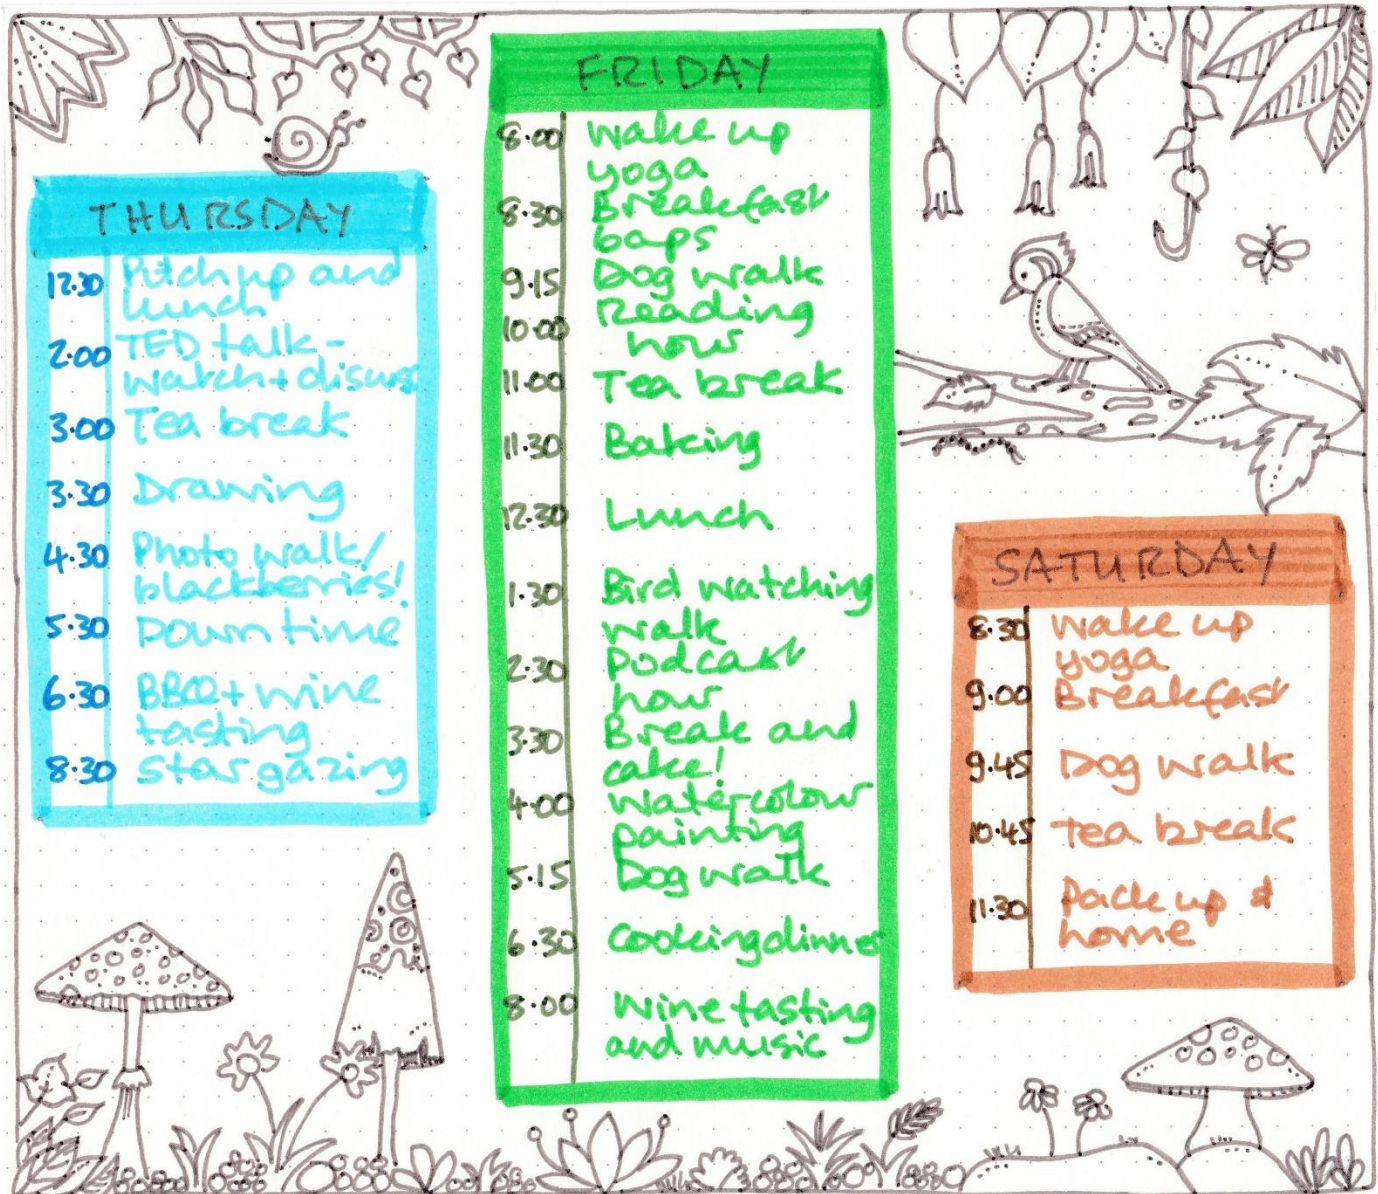 THURSDAY
12.30 Pitch up and
lunch
2.00 TED talk -
watch + discuss
3.00 Tea break
3.30 Drawing
4.30 Photo walk/
blackberries!
5.30 Down time
6.30 BBQ + wine
tasting
8.30 Star gazing
FRIDAY
8.00 Wake up
yoga
8.30 Breakfast
baps
9.15 Dog walk
10.00 Reading
hour
11.00 Tea break
11.30 Baking
12.30 Lunch
1.30 Bird watching
walk
2.30 Podcast
hour
3.30 Break and
cake!
4.00 Watercolour
painting
5.15 Dog walk
6.30 Cooking dinner
8.00 Wine tasting
and music
SATURDAY
8.30 Wake up
yoga
9.00 Breakfast
9.45 Dog walk
10.45 Tea break
11.30 Pack up &
home